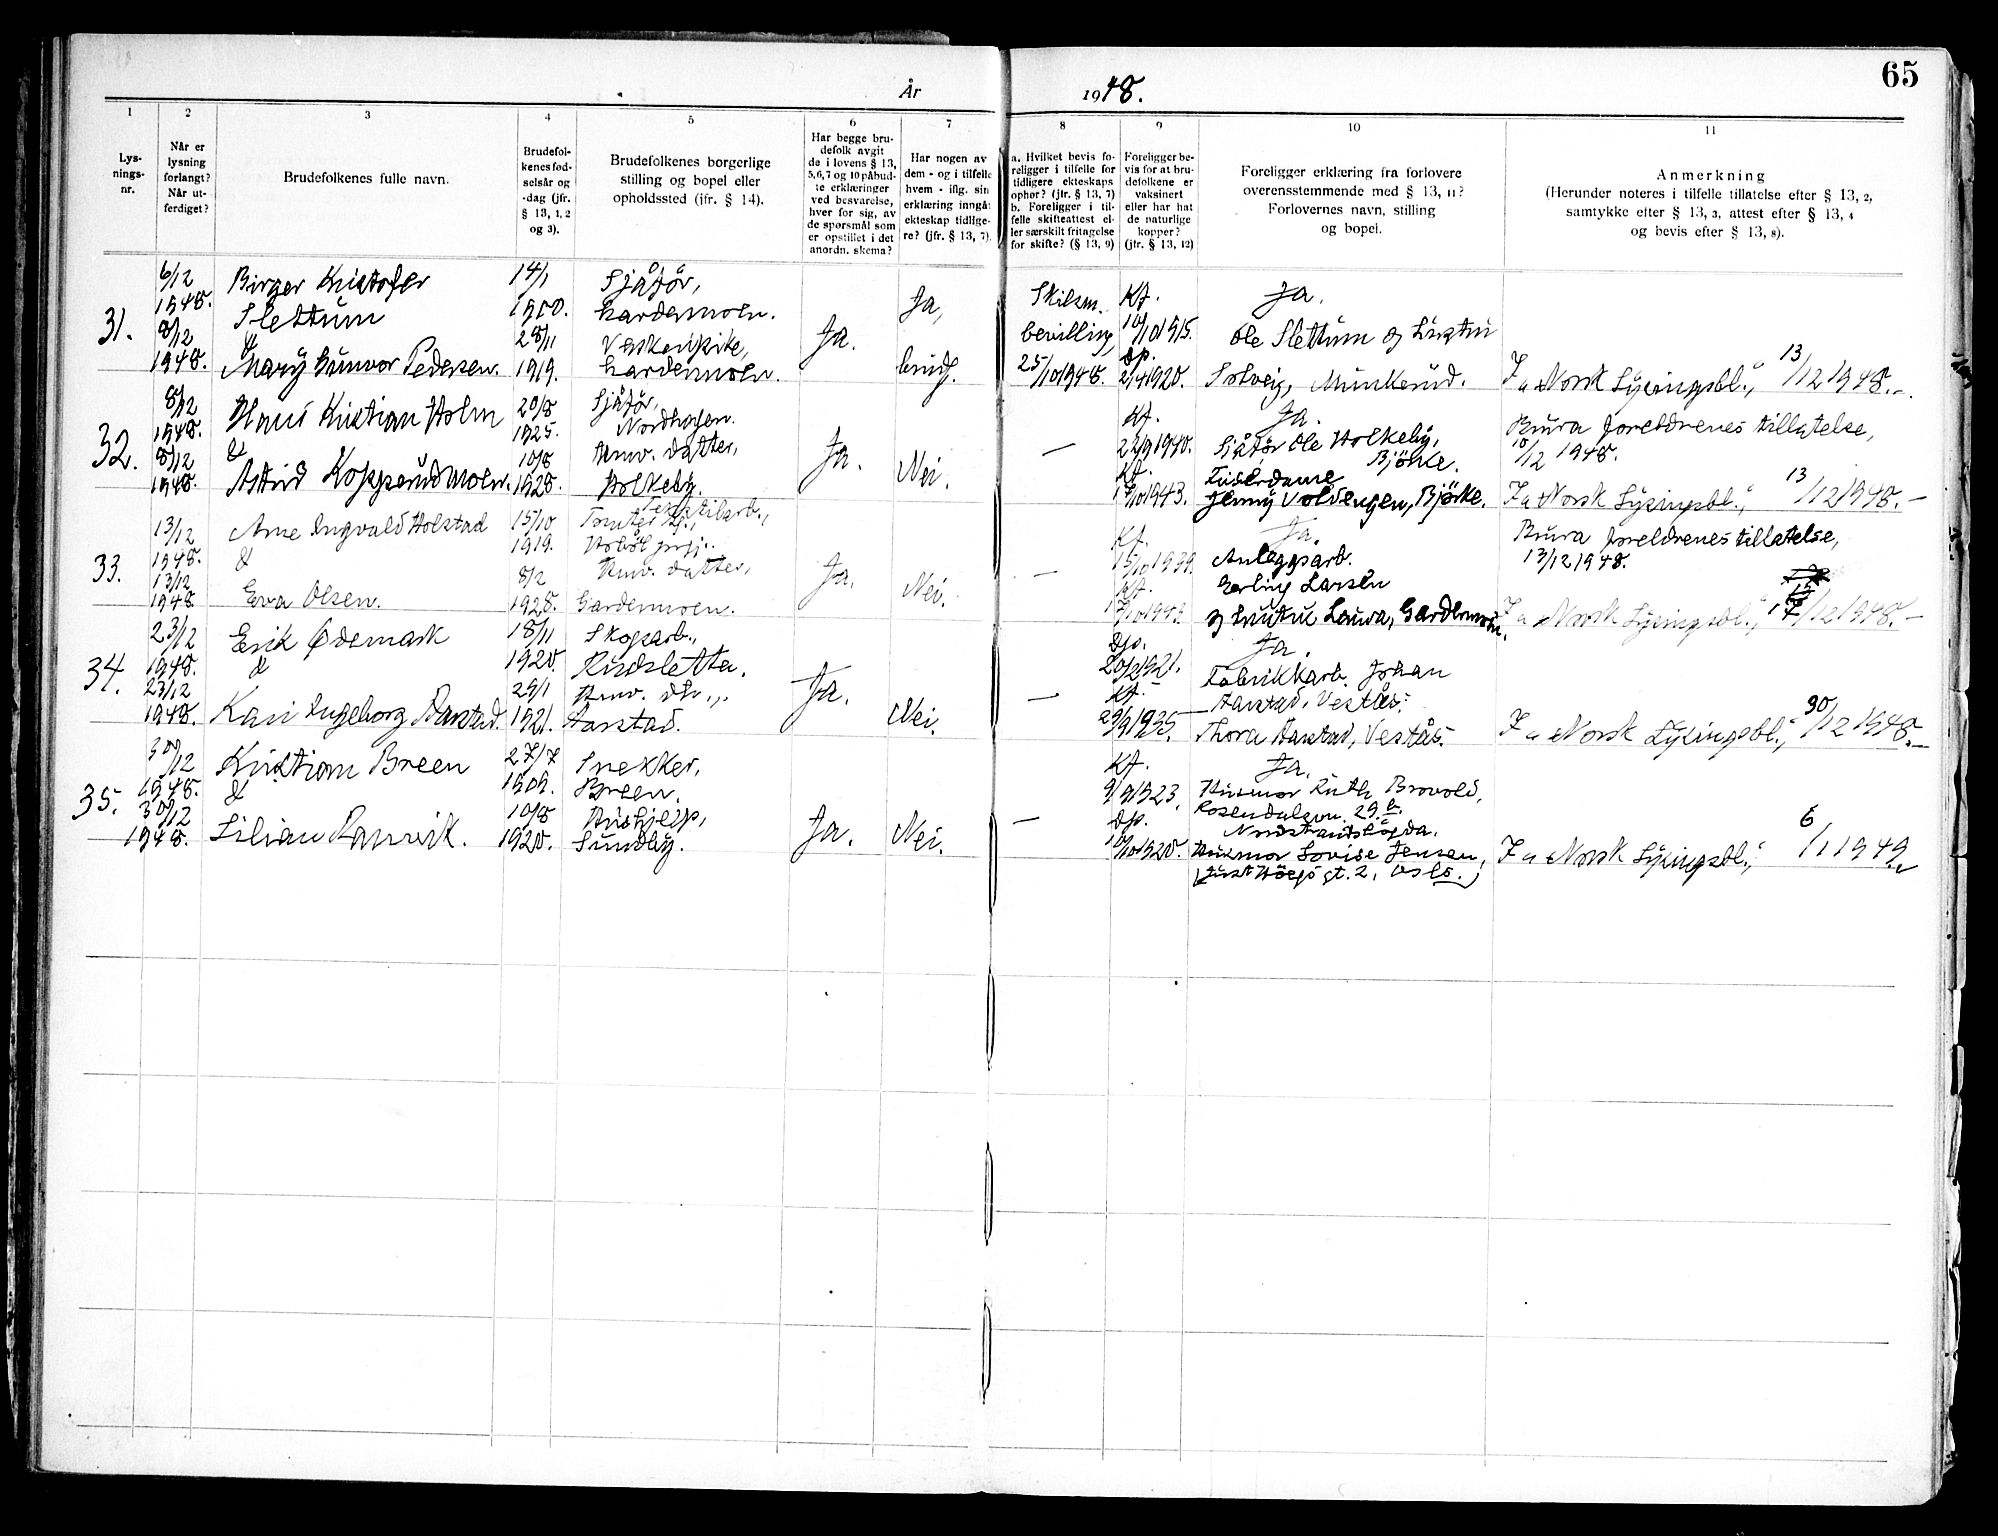 65
År 1948.
1 2 3 4 5 6 7 8 9 10 11
Lys-
nings-
nr.
Når er
lysning
forlangt?
Når ut-
ferdiget?
Brudefolkenes fulle navn.
Brudefol-
kenes fød-
selsår og
-dag (jfr.
§ 13, 1, 2
og 3).
Brudefolkenes borgerlige
stilling og bopel eller
opholdssted (jfr. § 14).
Har begge bru-
defolk avgit
de i lovens § 13,
5, 6, 7 og 10 påbud-
te erklæringer
ved besvarelse,
hver for sig, av
de spørsmål som
er opstillet i det
anordn. skema?
Har nogen av
dem - og i tilfelle
hvem - iflg. sin
erklæring inngåt
ekteskap tidlige-
re? (jfr. § 13, 7).
a. Hvilket bevis fo-
religger i tilfelle for
tidligere ekteskaps
ophør? (jfr. § 13, 7)
b. Foreligger i til-
felle skifteattest el-
ler særskilt fritagelse
for skifte? (§ 13, 9)
Foreligger be-
vis for at bru-
defolkene er
vaksinert
eller har hat
de naturlige
kopper?
(jfr. § 13, 12)
Foreligger erklæring fra forlovere
overensstemmende med § 13, 11?
Forlovernes navn, stilling
og bopel.
Anmerkning
(Herunder noteres i tilfelle tillatelse efter § 13, 2,
samtykke efter § 13, 3, attest efter § 13, 4
og bevis efter § 13, 8).
31.
6/12
1948.
8/12
1948.
Birger Kristofer
Slettum
&
Mary Gunvor Pedersen.
14/1
1900.
28/11
1919.
Sjåfør,
Gardermoen.
Gardermoen.
Ja.
Ja,
brudg.
Skilsm.
bevilling,
25/10 1948.
Kf.
10/10 1915.
Dp.
2/4 1920.
Ja.
Ole Slettum og hustru
Solveig, Munkerud.
I „Norsk Lysingsbl.", 13/12 1948.-
32.
8/12
1948.
8/12
1948.
Hans Kristian Holm
&
Astrid Kopperudmoen.
20/8
1925.
10/8
1928.
Sjåfør,
Nordhagen.
Hmv. datter,
Holkeby.
Ja.
Nei.
—
Kf.
22/9 1940.
Kf.
1943.
Ja.
Sjåfør Ole Holkeby,
Bjørke.
Frisørdame
Jenny Voldengen, Bjørke.
Brura foreldrenes tillatelse,
10/12 1948.
I „Norsk Lysingsbl.", 13/12 1948.-
33.
13/12
1948.
13/12
1948.
Arne Ingvald Holstad
&
Eva Olsen.
15/10
1919.
8/2
1928.
Tekstilarb.,
Hmv. datter,
Gardermoen.
Ja.
Nei.
—
Kf.
15/10 1939.
Kf.
1943.
Ja.
Anleggsarb.
Erling Larsen
og hustru Laura, Gardermoen.
Brura foreldrenes tillatelse,
13/12 1948.
I „Norsk Lysingsbl.", 17/12 1948.-
34.
23/12
1948.
23/12
1948.
Erik Ødemark
&
Kari Ingeborg Aarstad.
18/11
1920.
29/1
1921.
Skogsarb.,
Rudsletta.
Hmv. dtr.,
Aarstad.
Ja.
Nei.
—
Dp.
20/2 1921.
Kf.
29/9 1935.
Ja.
Fabrikkarb. Johan
Aarstad, Vestås.
Thora Aarstad, Vestås.
I „Norsk Lysingsbl.", 30/12 1948.-
35.
30/12
1948.
30/12
1948.
Kristian Breen
&
Lilian Ranvik.
27/7
1909.
10/8
1920.
Snekker,
Breen.
Hushjelp,
Sundby.
Ja.
Nei.
—
Kf.
9/9 1923.
Dp.
10/10 1920.
Ja.
Husmor Ruth Brovold,
Rosendalsvn. 29.b
Nordstrandshøgda.
Husmor Lovise Jensen,
gt. 2, Oslo.
I „Norsk Lysingsbl.", 6/1 1949.